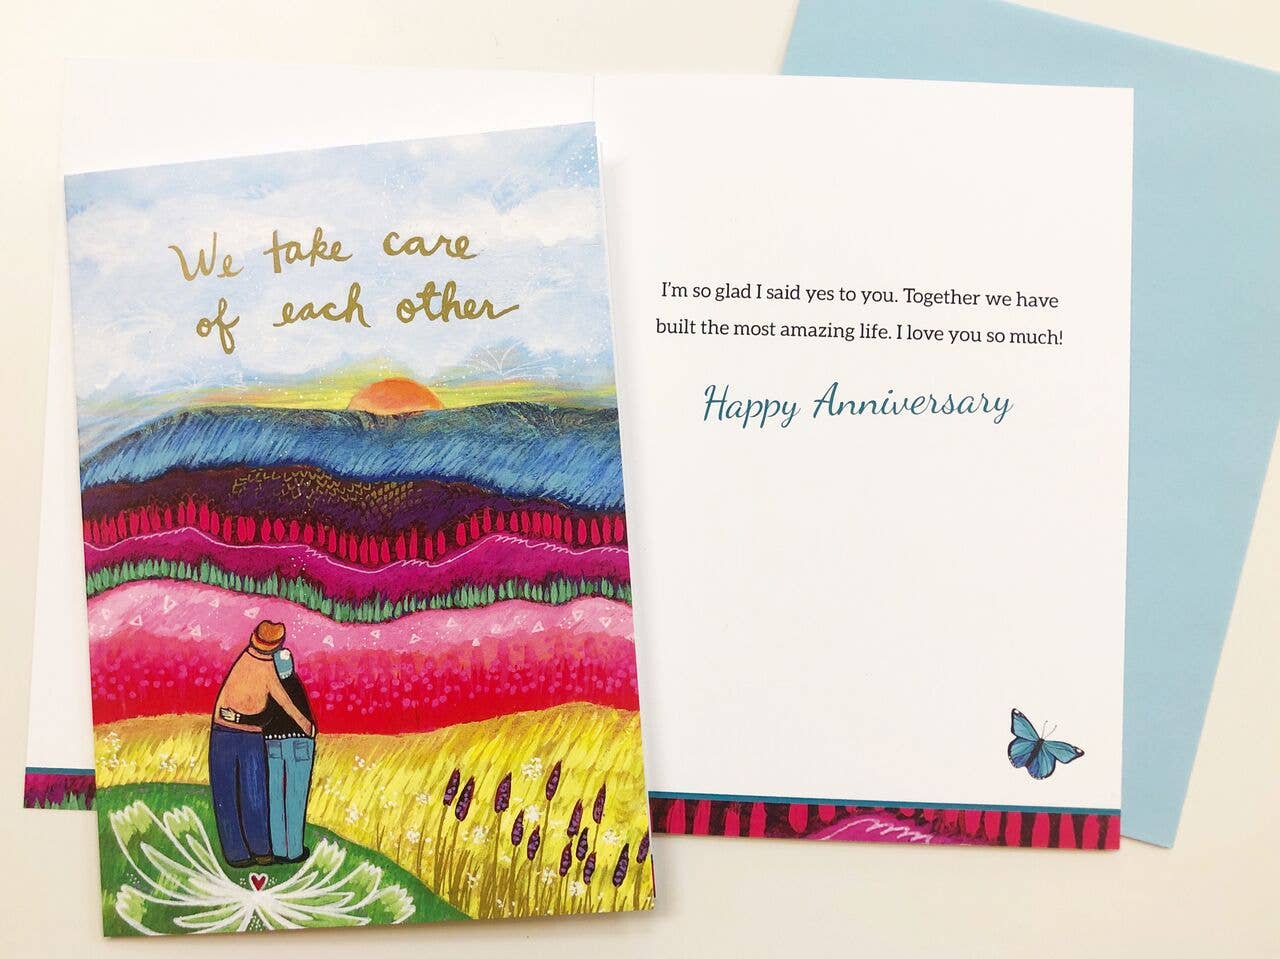 We take care
of each other
I'm so glad I said yes to you. Together we have
built the most amazing life. I love you so much!
Happy Anniversary